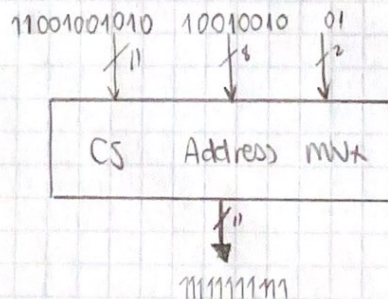 11001001010 10010010 01
11 8 2
CS Address mux
11
11111111111